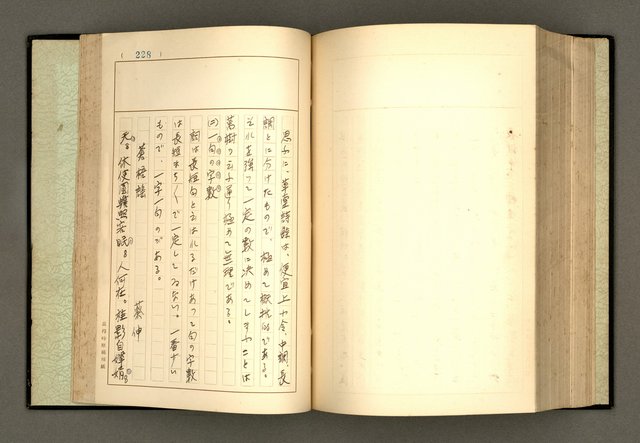 (228)
思ふに、草堂詩餘は、便宜上小令、中調、長
調とに分けたもので、極めて概括的である。
それを強って一定の数に決めてしまふことは
萬樹の云ふ通り極めて無理である。
(二)一句の字数
詞は長短句と云はれるだけあって句の字数
は長短まち〱で一定してゐない。一番少い
もので、一字一句のである。
蒼梧謠
蔡伸
天。休使圓蟾照客眠。人何在。桂影自嬋娟。